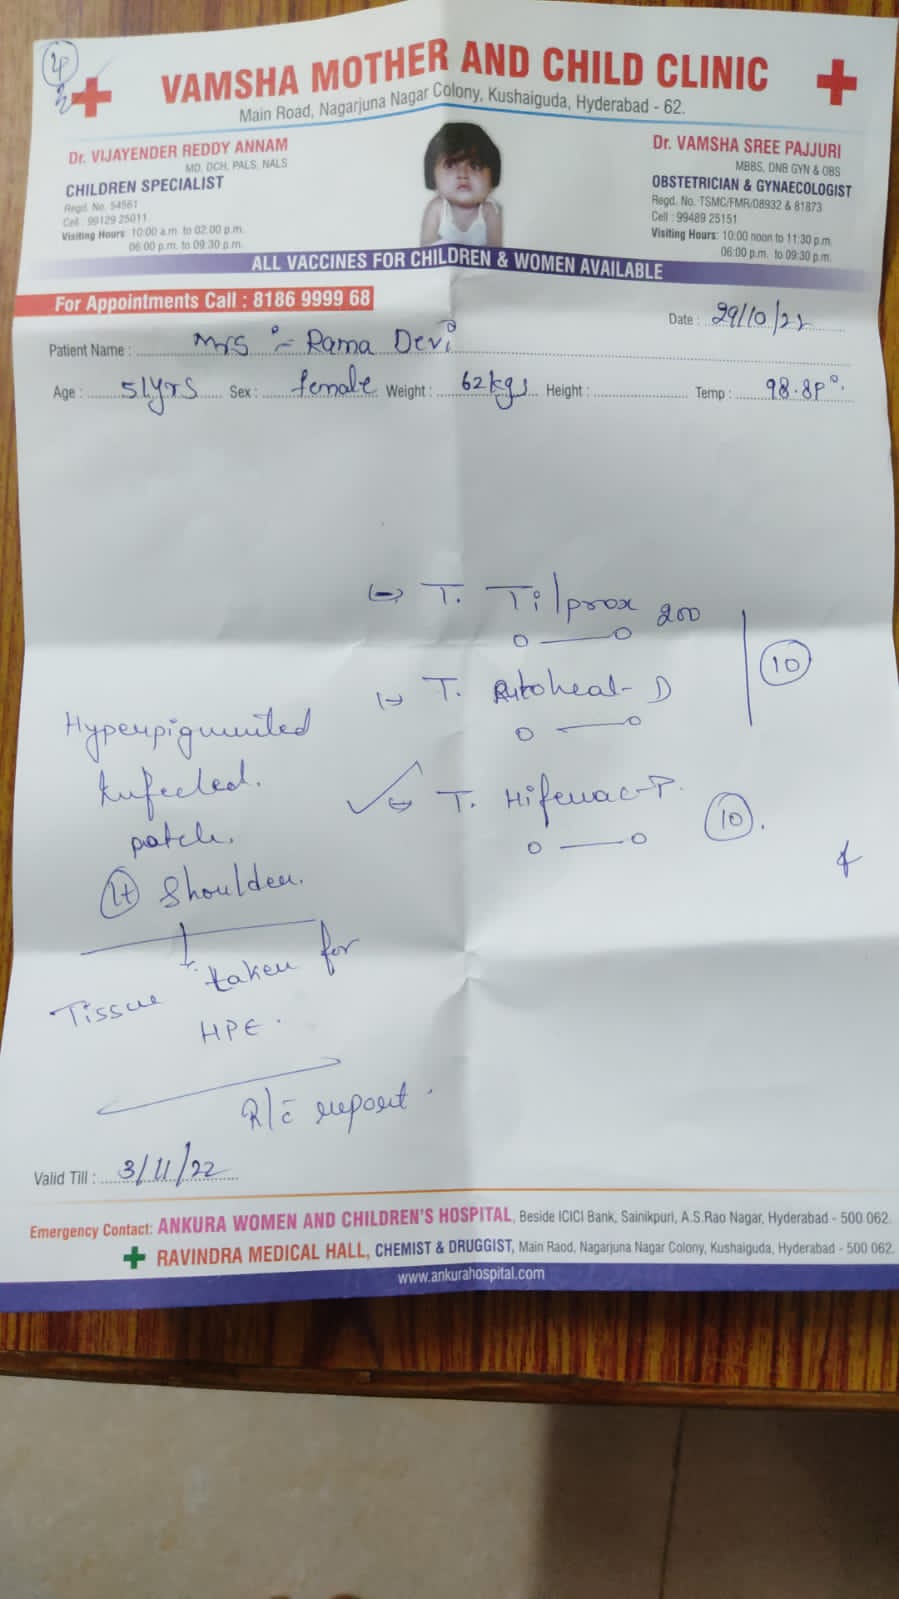 VAMSHA MOTHER AND CHILD CLINIC
Main Road, Nagarjuna Nagar Colony, Kushaiguda, Hyderabad - 62.
Dr. VIJAYENDER REDDY ANNAM
MD, DCH, PALS, NALS
CHILDREN SPECIALIST
Regd. No. 54561
Cell : 99129 25011
Visiting Hours: 10:00 a.m. to 02.00 p.m.
06:00 p.m. to 09:30 p.m.
Dr. VAMSHA SREE PAJJURI
MBBS, DNB GYN & OBS
OBSTETRICIAN & GYNAECOLOGIST
Regd. No. TSMC/FMR/08932 & 81873
Cell : 99489 25151
Visiting Hours: 10:00 noon to 11:30 p.m.
06:00 p.m. to 09:30 p.m.
ALL VACCINES FOR CHILDREN & WOMEN AVAILABLE
For Appointments Call : 8186 9999 68
Date : 29/10/22
Patient Name : Mrs :- Rama Devi
Age : 51yrs Sex : female Weight : 62kgs Height : Temp : 98.8F°.
T. Tilprox 200
10
T. Rutoheal-D
T. Hifenac-P.
10.
Hyperpigmented
Infected.
patch.
Lt Shoulder.
Tissue taken for
HPE.
R/c report.
Valid Till : 3/11/22
Emergency Contact: ANKURA WOMEN AND CHILDREN'S HOSPITAL, Beside ICICI Bank, Sainikpuri, A.S.Rao Nagar, Hyderabad - 500 062.
RAVINDRA MEDICAL HALL, CHEMIST & DRUGGIST, Main Raod, Nagarjuna Nagar Colony, Kushaiguda, Hyderabad - 500 062.
www.ankurahospital.com